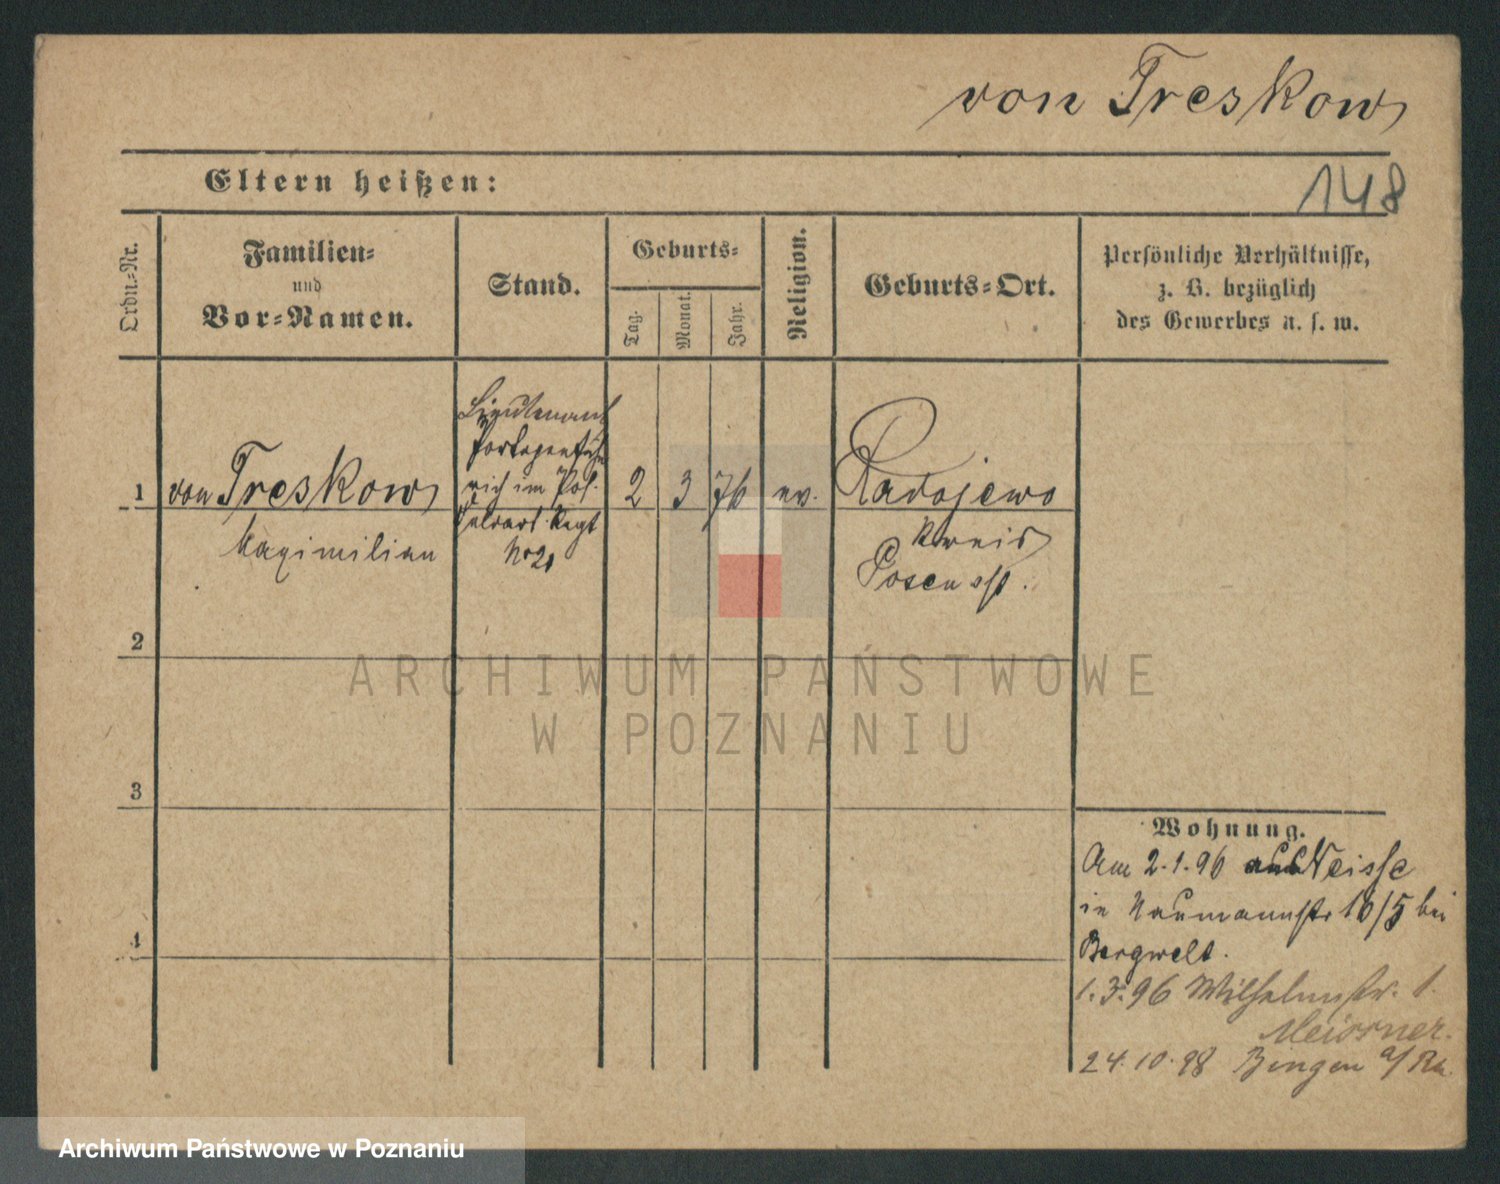 von Treskow
Eltern heißen:
148
Ordn.-Nr.
Familien-
und
Vor-Namen.
Stand.
Geburts-
Tag.
Monat.
Jahr.
Religion.
Geburts-Ort.
Persönliche Verhältnisse,
z. B. bezüglich
des Gewerbes u. s. w.
1
von Treskow
Maximilian
Lieutenant
Portepeefäh
rich im Pos.
Feldart. Regt
No 20
2 3 76 ev.
Radojewo
Kreis
Posen Ost.
2
3
4
Wohnung.
Am 2.1.96 aus Neisse
in Naumannstr 16/5 bei
Bergwelt.
1.3.96 Wilhelmstr. 1.
Meissner.
24.10.98 Bingen a/Rh.
ARCHIWUM PAŃSTWOWE
W POZNANIU
Archiwum Państwowe w Poznaniu